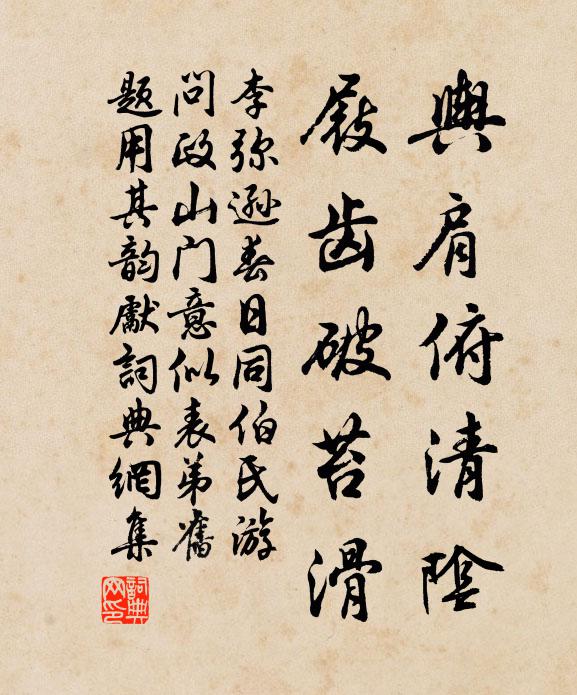 輿肩俯清陰
屐齿破苔滑
李弥遜春日同伯氏游
问政山门意似表弟舊
题用其韵獻詞典網集
詞典网印